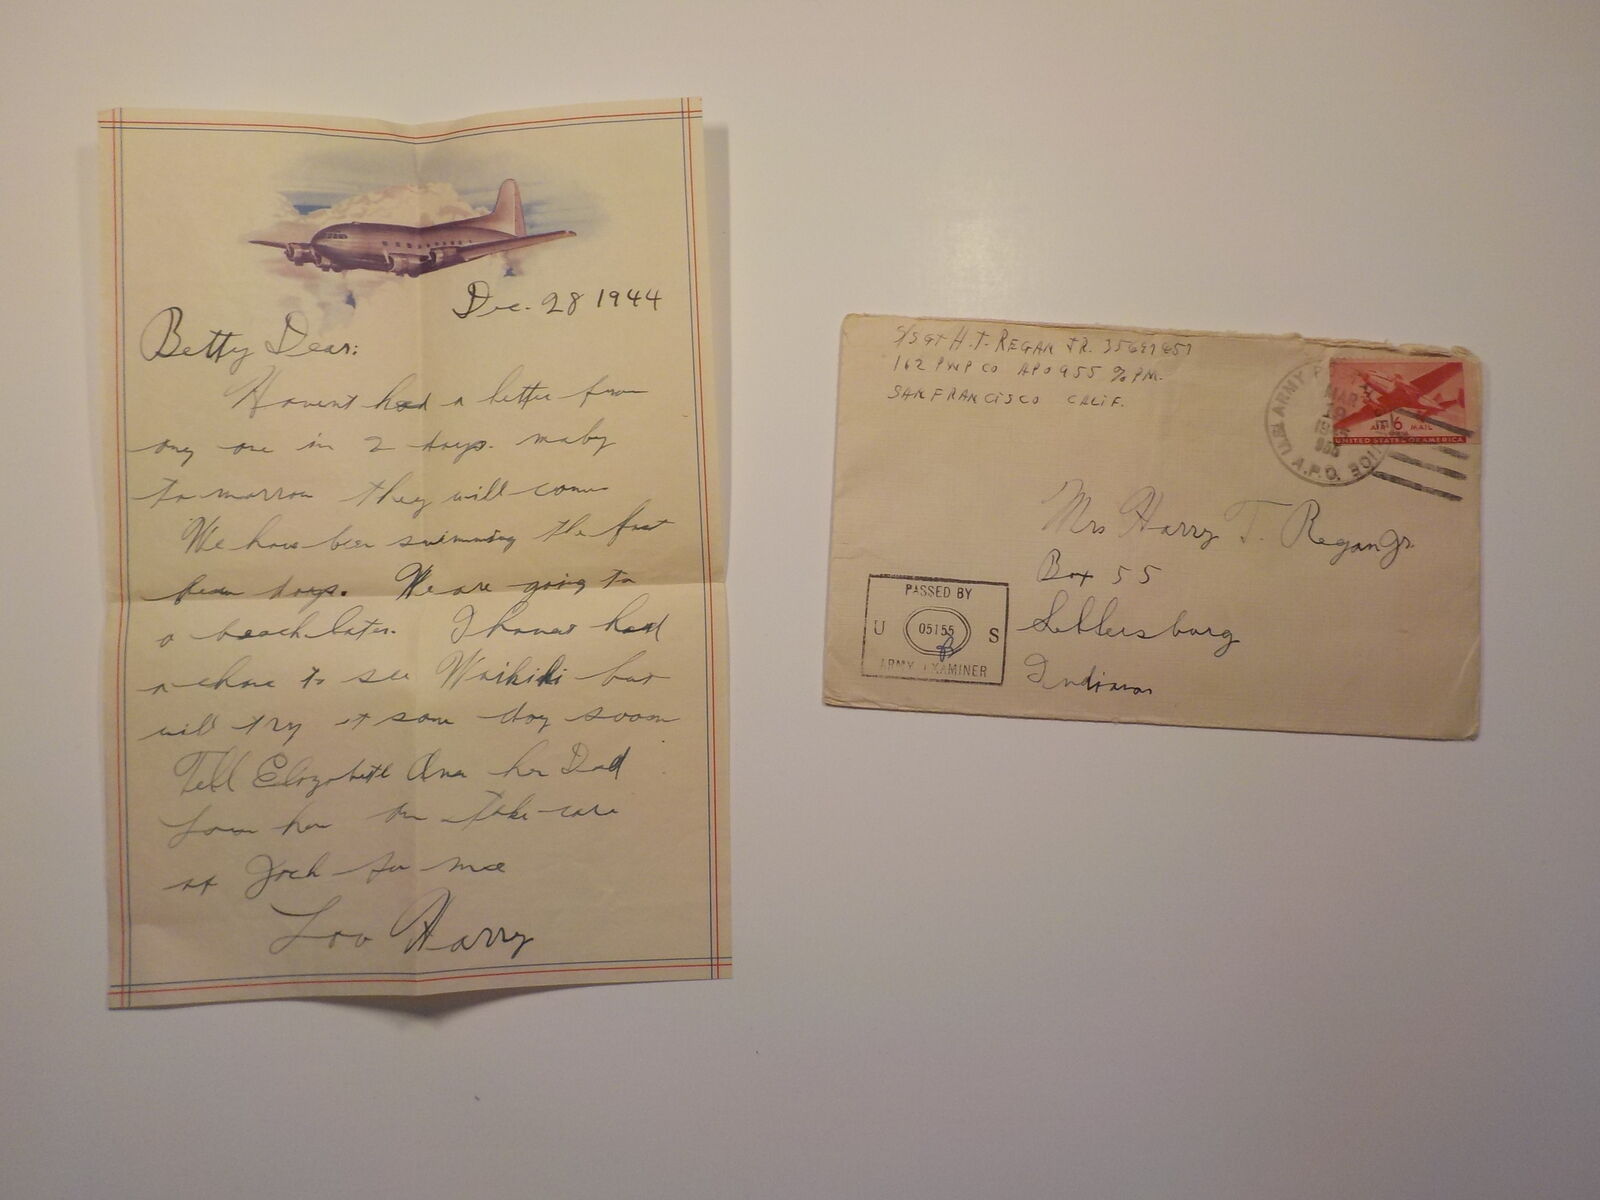 Dec. 28 1944
Betty Dear:
Havent had a letter from
any one in 2 days. maby
to marrow they will come
We have been swimming the fast
few days. We are going to
a beach later. I havent had
a chane to see Waikiki but
will try it some day soon
Tell Elizabeth Ann her Dad
Loves her an take care
of Jack for me
Lov Harry
S/SGT H.T. REGAN JR. 35697857
162 PWP CO APO 955 % P.M.
SAN FRANCISCO CALIF.
U.S. ARMY
MAR
A.P.O.
955
6
AIR MAIL
UNITED STATES OF AMERICA
Mrs Harry T. Regan Jr.
Box 55
Sellersburg
Indiana
PASSED BY
U 05155 S
ARMY EXAMINER